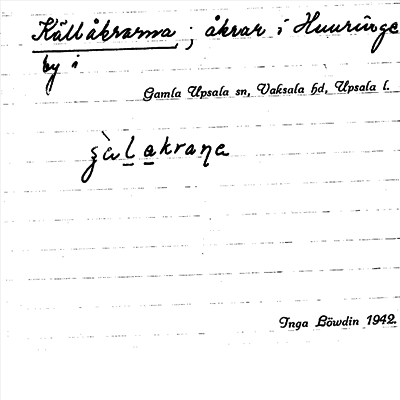 Källåkrarna ; åkrar i Huuringe
by i
Gamla Upsala sn, Vaksala hd, Upsala l.
Inga Löwdin 1942.